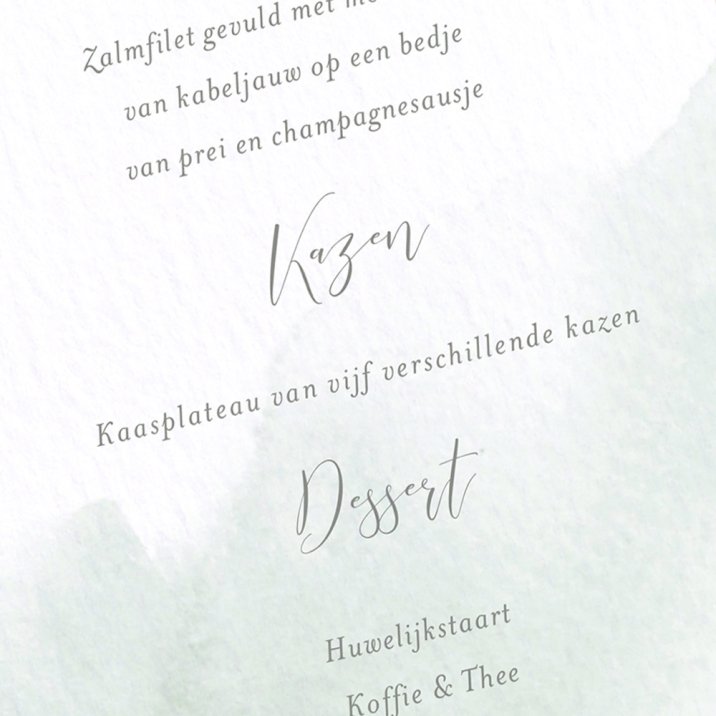 Zalmfilet gevuld met
van kabeljauw op een bedje
van prei en champagnesausje
Kazen
Kaasplateau van vijf verschillende kazen
Dessert
Huwelijkstaart
Koffie & Thee